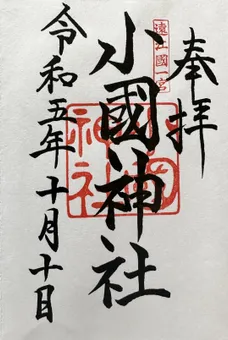 奉拝
遠江國一宮
小國神社
令和五年十月十日